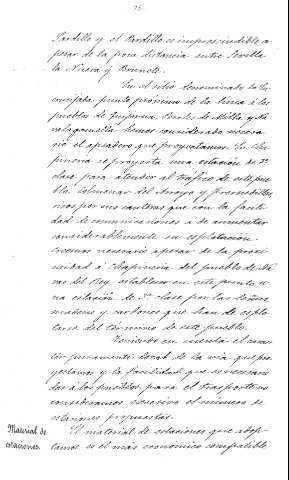 - 25 -
Pardillo y el Pardillo es imprescindible a
pesar de la poca distancia entre Sevilla
la Nueva y Brunete.
En el sitio denominado la En-
cinijada punto próximo de la linea á los
pueblos de Perales de Milla y Na-
valagamella hemos considerado necesa-
rio el apeadero que proyectamos. En Cha-
pineria se proyecta una estación de 3ª
clase para atender al tráfico de este pue-
blo, Colmenar del Arroyo y Fresnedillas,
ricos por sus canteras que con la facili-
dad de comunicaciones á de aumentar
considerablemente su explotación.
Creemos necesario apesar de la proxi-
midad á Chapineria del pueblo de Na-
vas del Rey establecer en este punto u-
na estación de 3ª clase por las
maderas y carbones que han de explo-
tarse del término de este pueblo.
Teniendo en cuenta el carac-
ter puramente local de la via que pro-
yectamos y la facilidad que es necesario
dar á los pueblos para el trasporte no
consideramos excesivo el número de
estaciones propuestas.
Material de
estaciones.
El material de estaciones que adop-
tamos es el más económico compatible